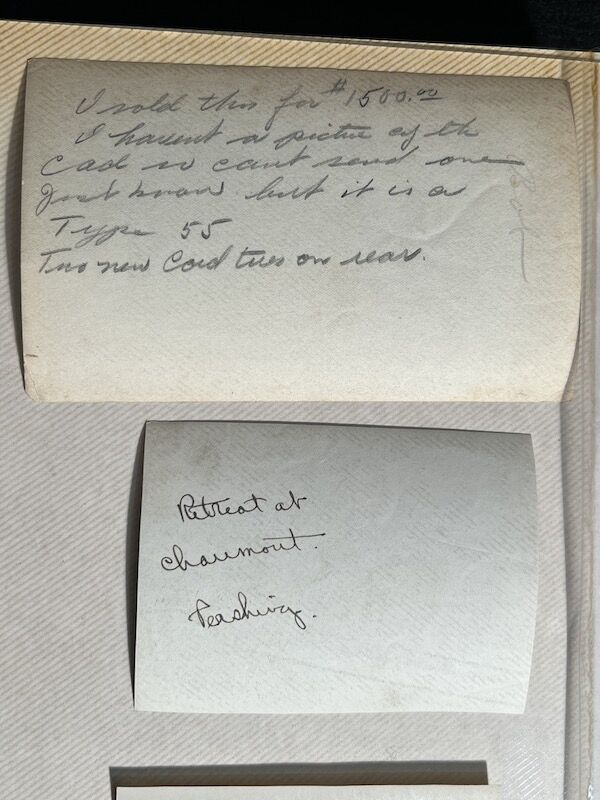 I sold this for $1500.00
I havent a picture of th
Cad so cant send one
Just know but it is a
Type 55
Two new Cord tires on rear.
Retreat at
Chaumont.
Pershing.